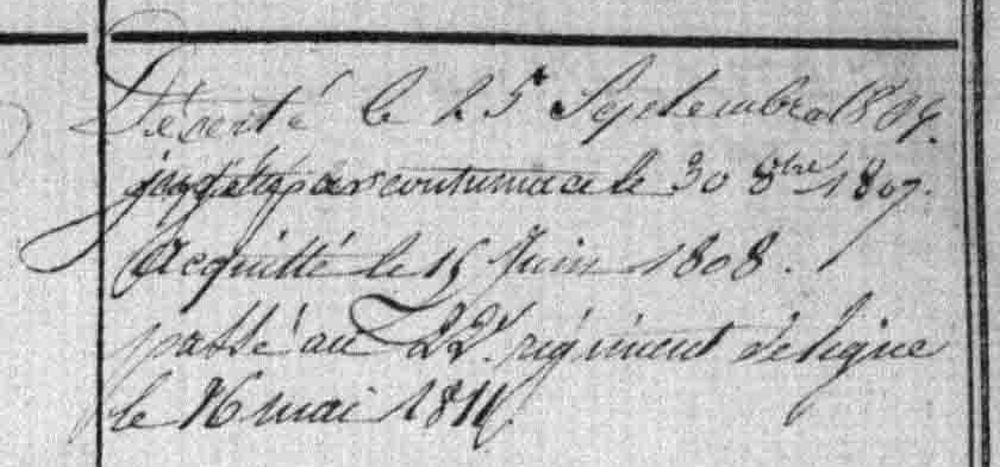 Déserté le 25 Septembre 1807.
jugé par contumace le 30 8bre 1807.
Acquitté le 15 Juin 1808.
passé au 22e régiment de ligne
le 16 mai 1811